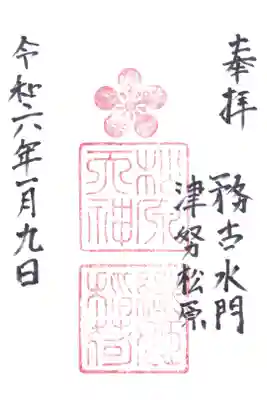 奉拝
務古水門
津努松原
松原
天神
稲荷
令和六年一月九日